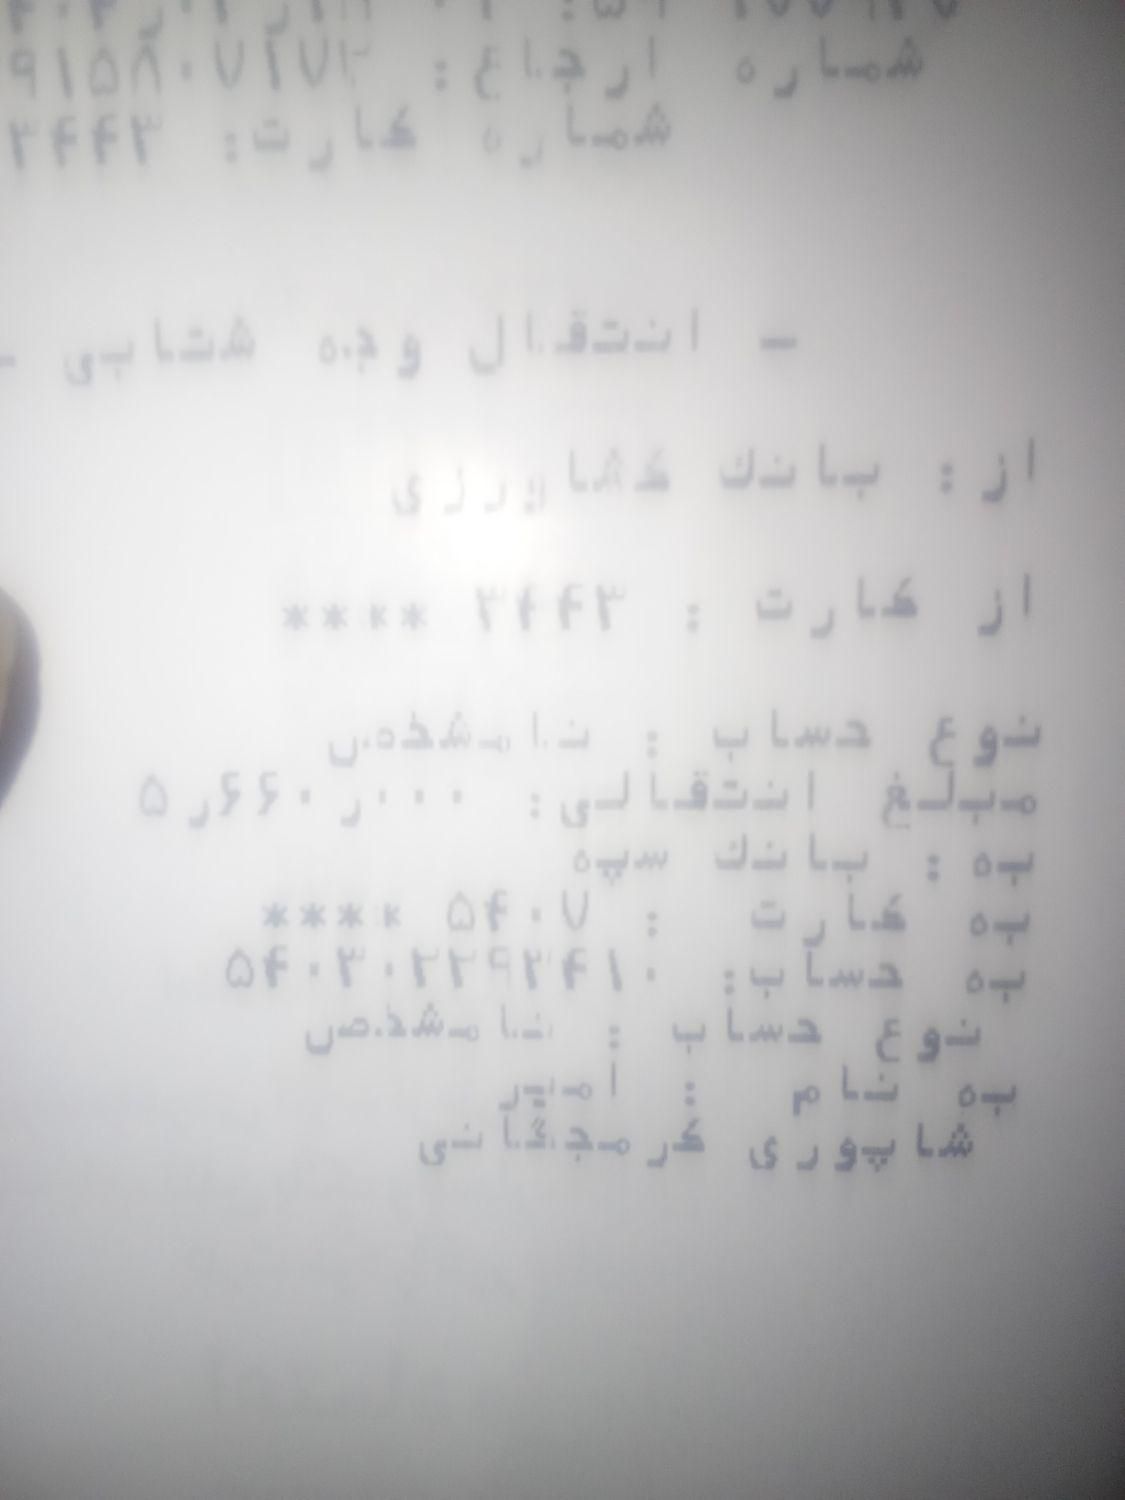 شماره ارجاع: ۲۱۷۱۷۰۸۵۱۹
شماره کارت: ۳۴۴۳
- انتقال وجه شتابی -
از: بانک کشاورزی
از کارت: ۳۴۴۳ ****
نوع حساب: نامشخص
مبلغ انتقالی: ۵٫۶۶۰٫۰۰۰
به: بانک سپه
به کارت: ۷۰۴۵ ****
به حساب: ۰۱۴۲۹۲۲۰۳۰۴۵
نوع حساب: نامشخص
به نام: امیر
شاپوری کرمجگانی